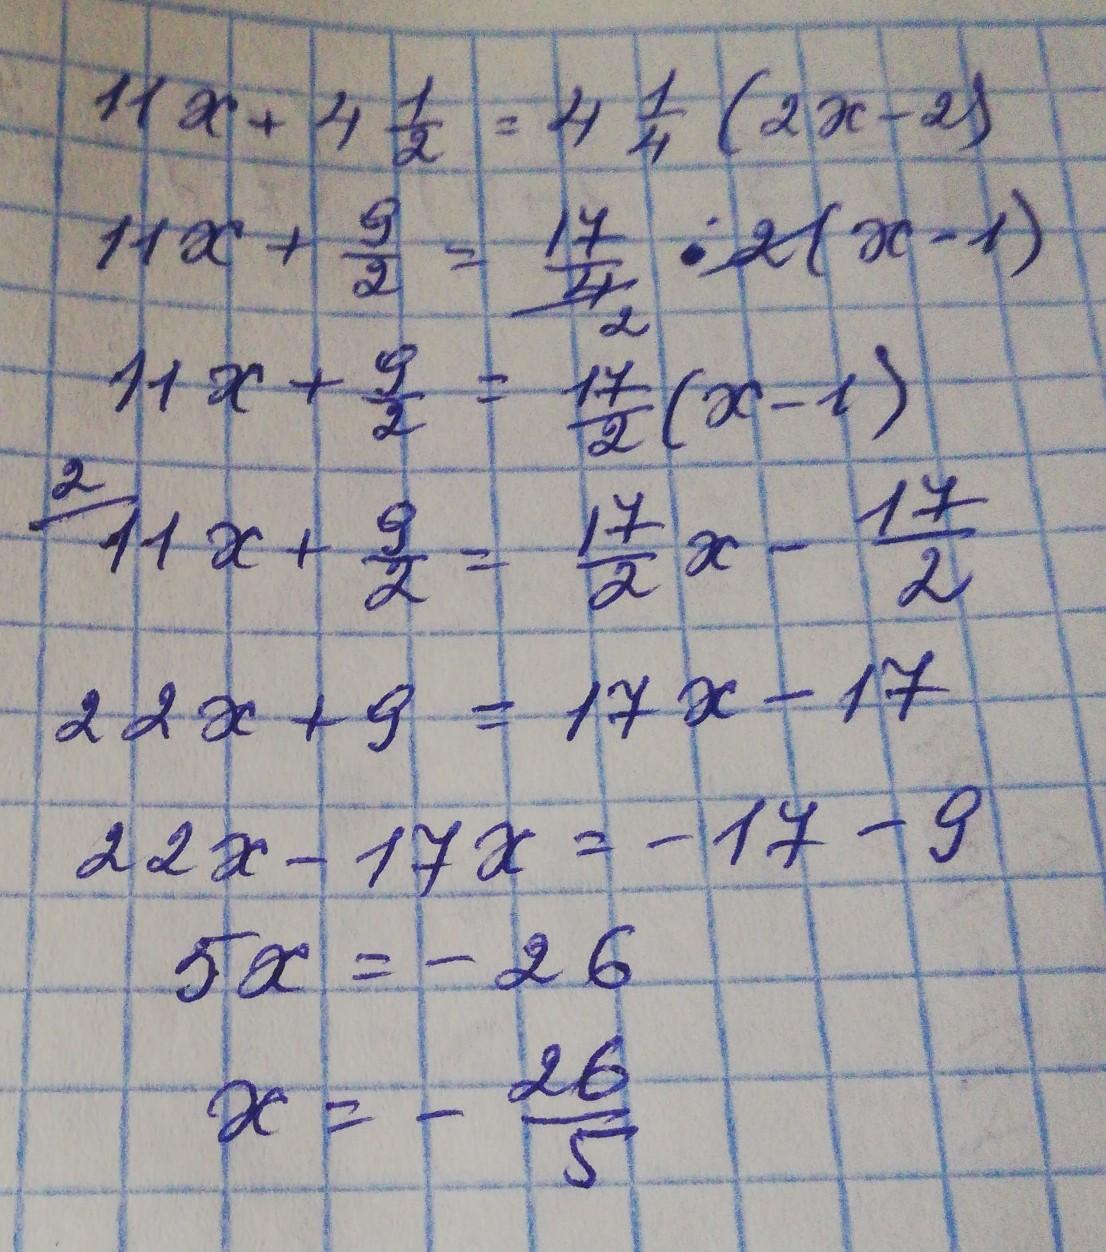 11x + 4 1/2 = 4 1/4 (2x - 2)
11x + 9/2 = 17/4 2 · 2(x - 1)
11x + 9/2 = 17/2 (x - 1)
2 11x + 9/2 = 17/2 x - 17/2
22x + 9 = 17x - 17
22x - 17x = - 17 - 9
5x = - 26
x = - 26/5